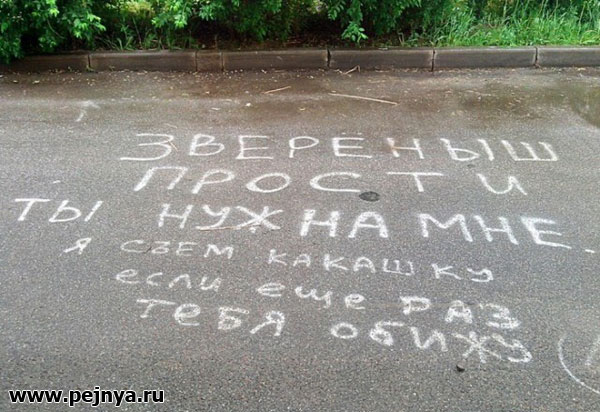 ЗВЕРЁНЫШ
ПРОСТИ
ТЫ НУЖНА МНЕ.
Я СЪЕМ КАКАШКУ
если еще РАЗ
ТЕБЯ ОБИЖУ
www.pejnya.ru